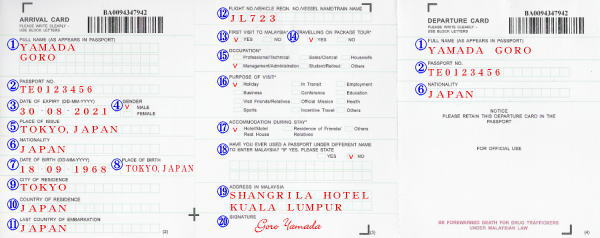 ARRIVAL CARD
PLEASE WRITE CLEARLY
USE BLOCK LETTERS
BA0094347942
① FULL NAME (AS APPEARS IN PASSPORT)
YAMADA
GORO
② PASSPORT NO.
TE0123456
③ DATE OF EXPIRY (DD-MM-YYYY)
30-08-2021
④ GENDER
V MALE
FEMALE
⑤ PLACE OF ISSUE
TOKYO, JAPAN
⑥ NATIONALITY
JAPAN
⑦ DATE OF BIRTH (DD-MM-YYYY)
18-09-1968
⑧ PLACE OF BIRTH
TOKYO, JAPAN
⑨ CITY OF RESIDENCE
TOKYO
⑩ COUNTRY OF RESIDENCE
JAPAN
⑪ LAST COUNTRY OF EMBARKATION
JAPAN
(2)
⑫ FLIGHT NO./VEHICLE REGN. NO./VESSEL NAME/TRAIN NAME
JL723
⑬ FIRST VISIT TO MALAYSIA?
V YES NO
⑭ TRAVELLING ON PACKAGE TOUR*
V YES NO
⑮ OCCUPATION*
Professional/Technical Sales/Clerical Housewife
V Management/Administration Student/Retired Others
⑯ PURPOSE OF VISIT*
V Holiday In Transit Employment
Business Conference Education
Visit Friends/Relatives Official Mission Health
Sports Incentive Travel Others
⑰ ACCOMMODATION DURING STAY*
V Hotel/Motel Residence of Friends/ Others
Rest House Relatives
⑱ HAVE YOU EVER USED A PASSPORT UNDER DIFFERENT NAME
TO ENTER MALAYSIA? *IF YES, PLEASE STATE
YES V NO
⑲ ADDRESS IN MALAYSIA
SHANGRILA HOTEL
KUALA LUMPUR
⑳ SIGNATURE
Goro Yamada
(3)
DEPARTURE CARD
PLEASE WRITE CLEARLY
USE BLOCK LETTERS
BA0094347942
① FULL NAME (AS APPEARS IN PASSPORT)
YAMADA GORO
② PASSPORT NO.
TE0123456
⑥ NATIONALITY
JAPAN
NOTICE
PLEASE RETAIN THIS DEPARTURE CARD IN THE
PASSPORT
FOR OFFICIAL USE
BE FOREWARNED DEATH FOR DRUG TRAFFICKERS
UNDER MALAYSIAN LAW
(4)